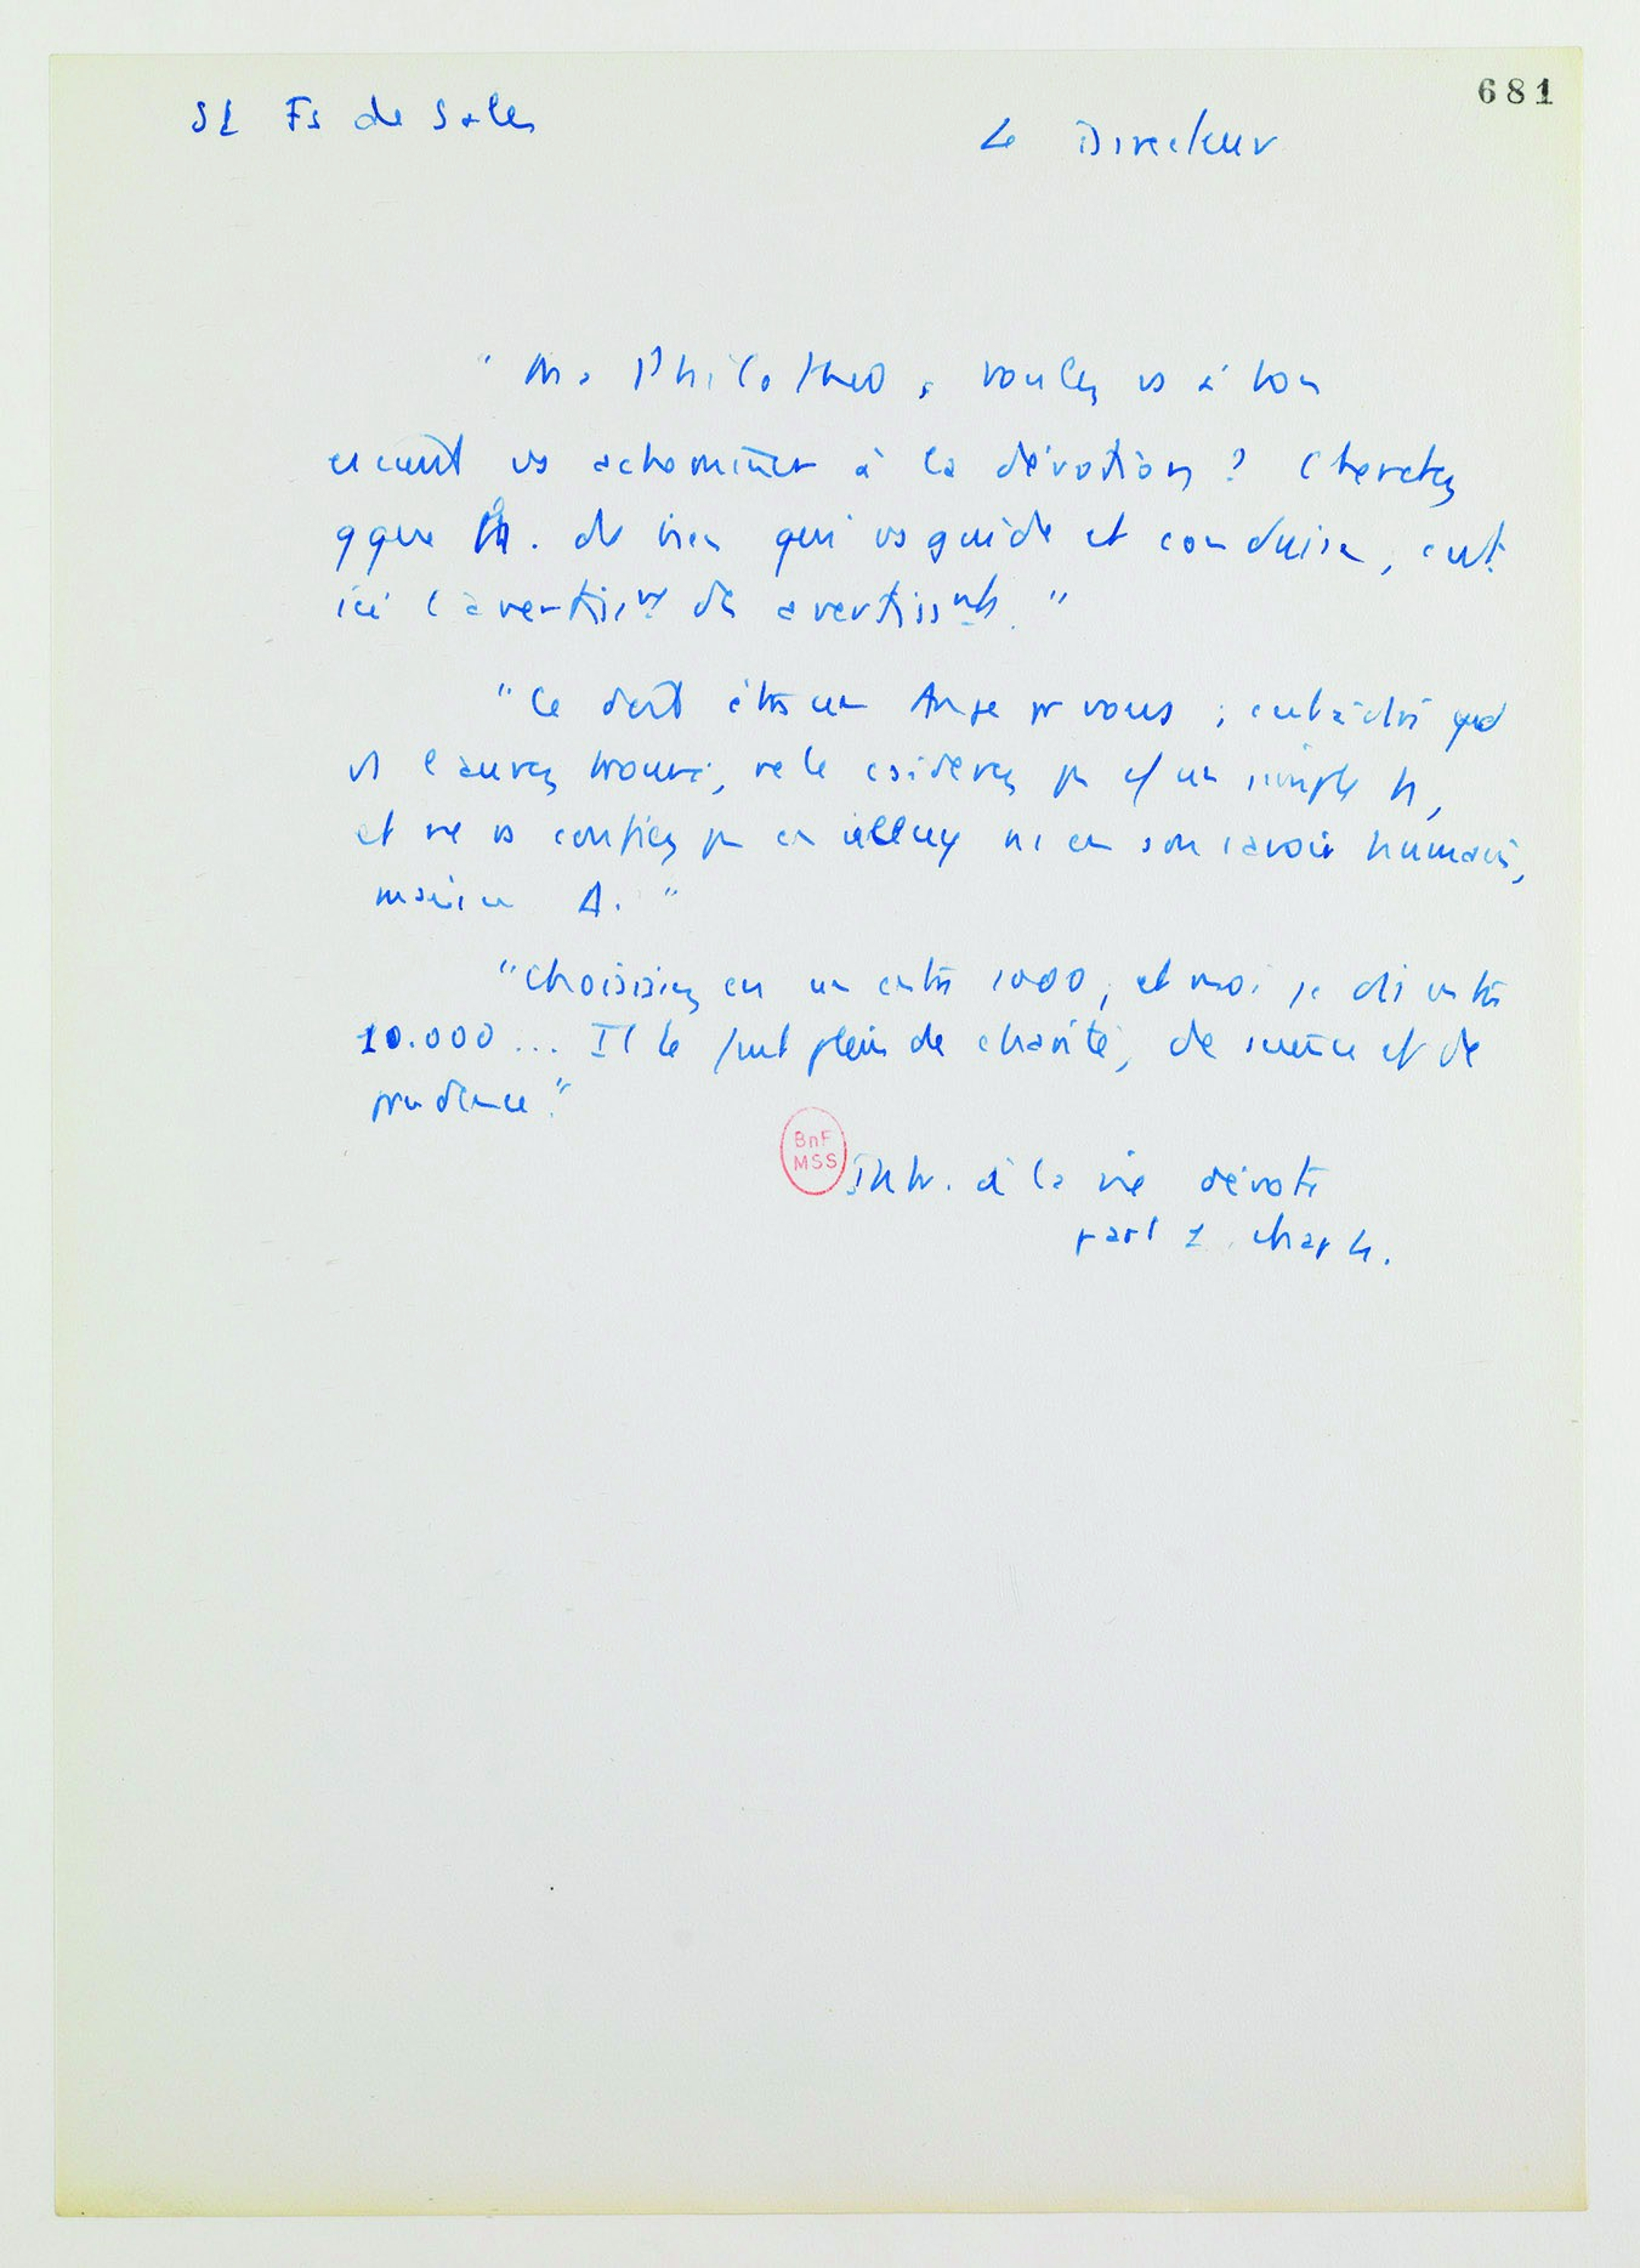 681
St Fs de Sales
Le Directeur
" Ma Philothée, voulez vs à bon
escient vs acheminer à la dévotion ? Cherchez
qque h. de bien qui vs guide et conduise, c'est
ici l'avertissnt des avertissnts. "
" Ce doit être un Ange pr vous ; c'est à dire qd
vs l'aurez trouvé, ne le csiderez pas c/ un simple h,
et ne vs confiez pas en icelluy ni en son savoir humain,
mais en Δ. "
" Choisissez en un entre 1000, et moi je dis entre
10.000 ... Il le faut plein de charité, de science et de
prudence."
BnF
MSS
Intr. à la vie dévote
part 1 chap 4.